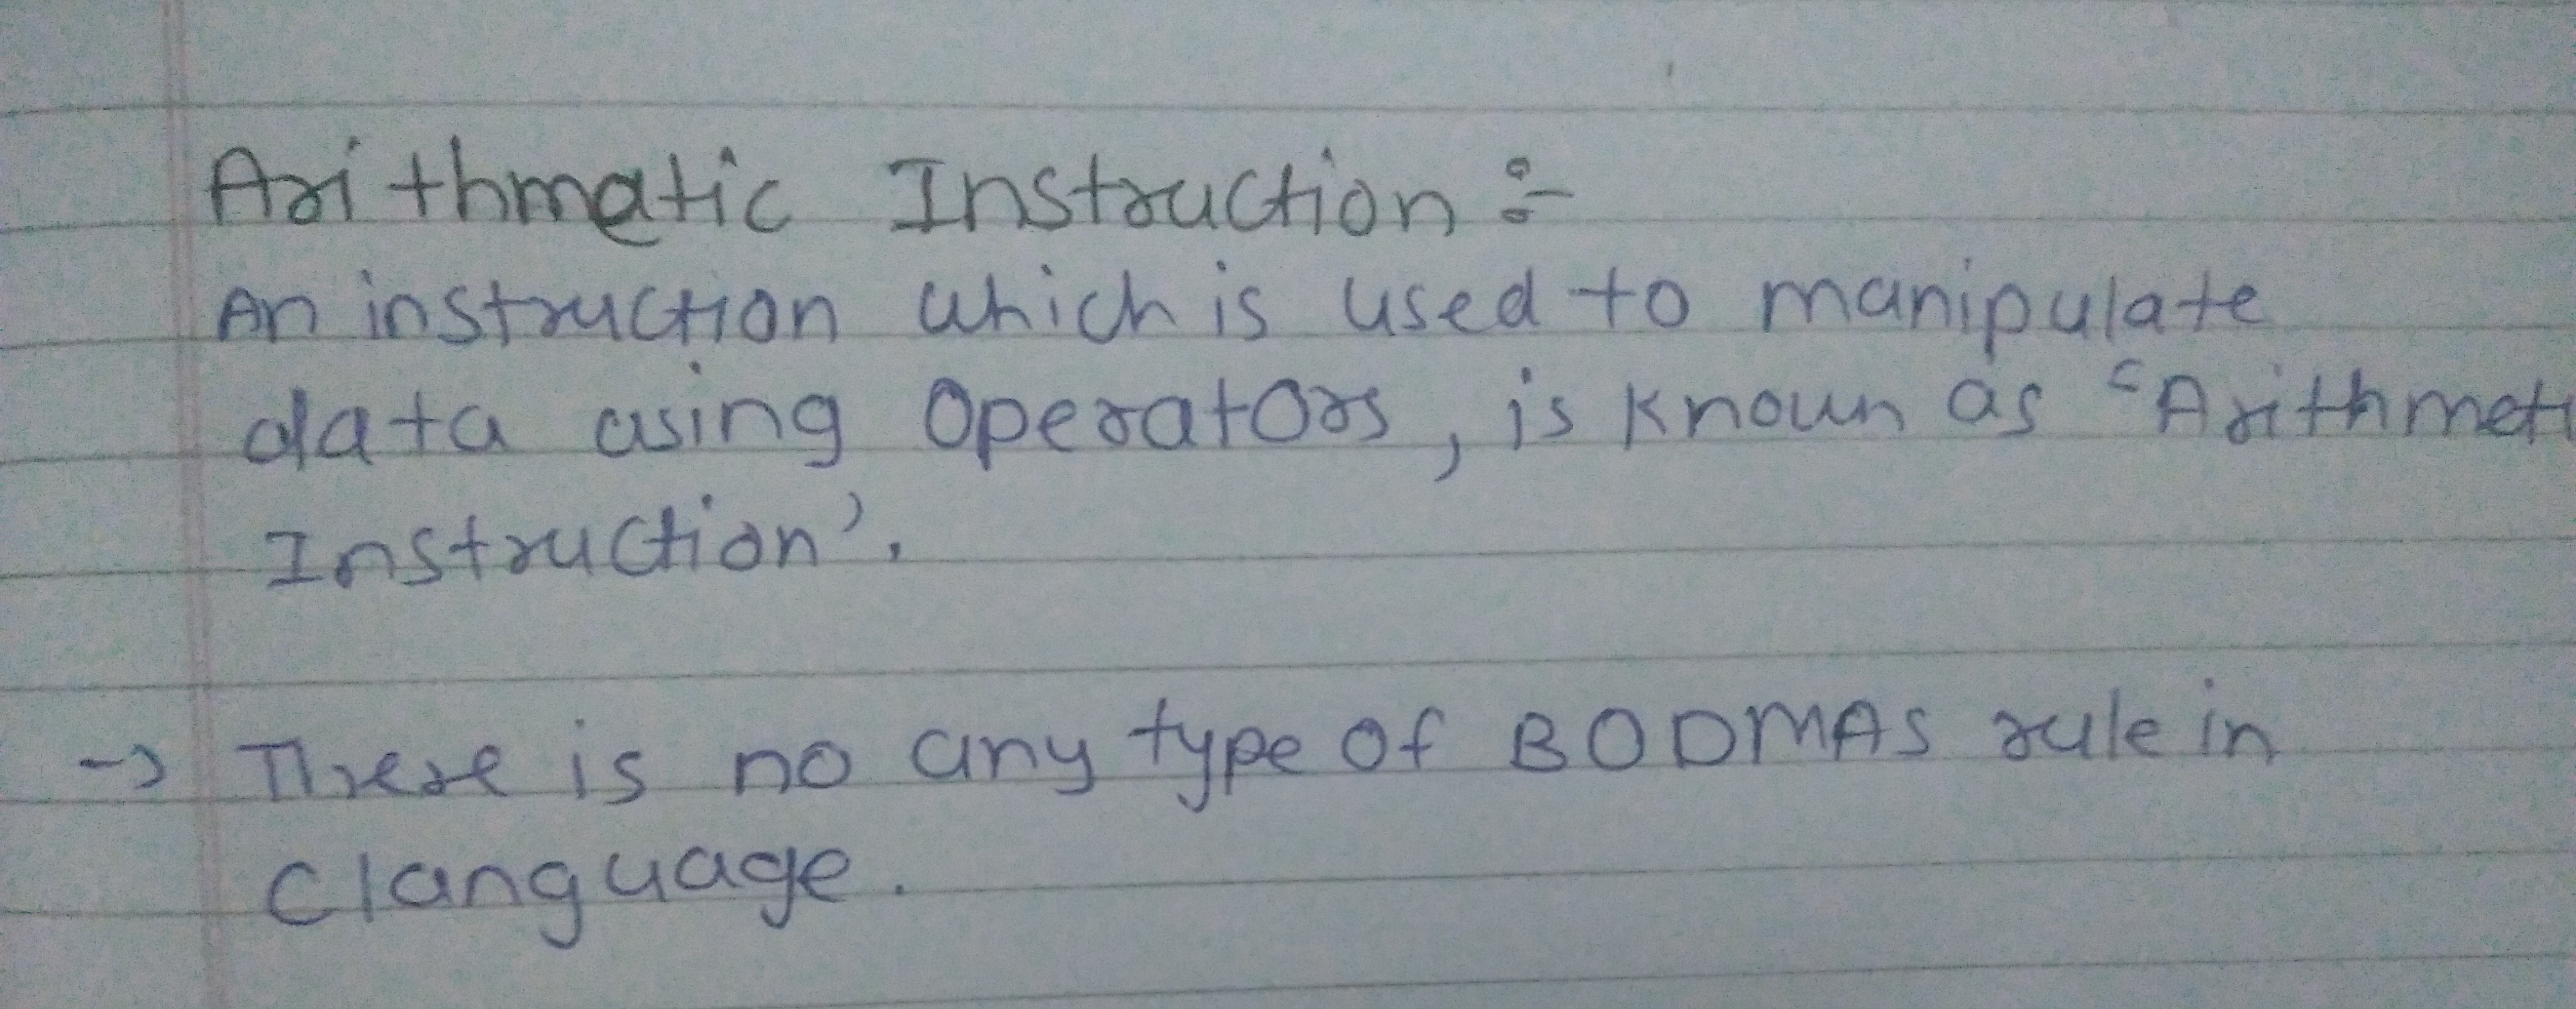 Arithmatic Instruction :-
An instruction which is used to manipulate
data using Operators, is known as 'Arithmeti
Instruction'.
-> There is no any type of BODMAS rule in
C language.